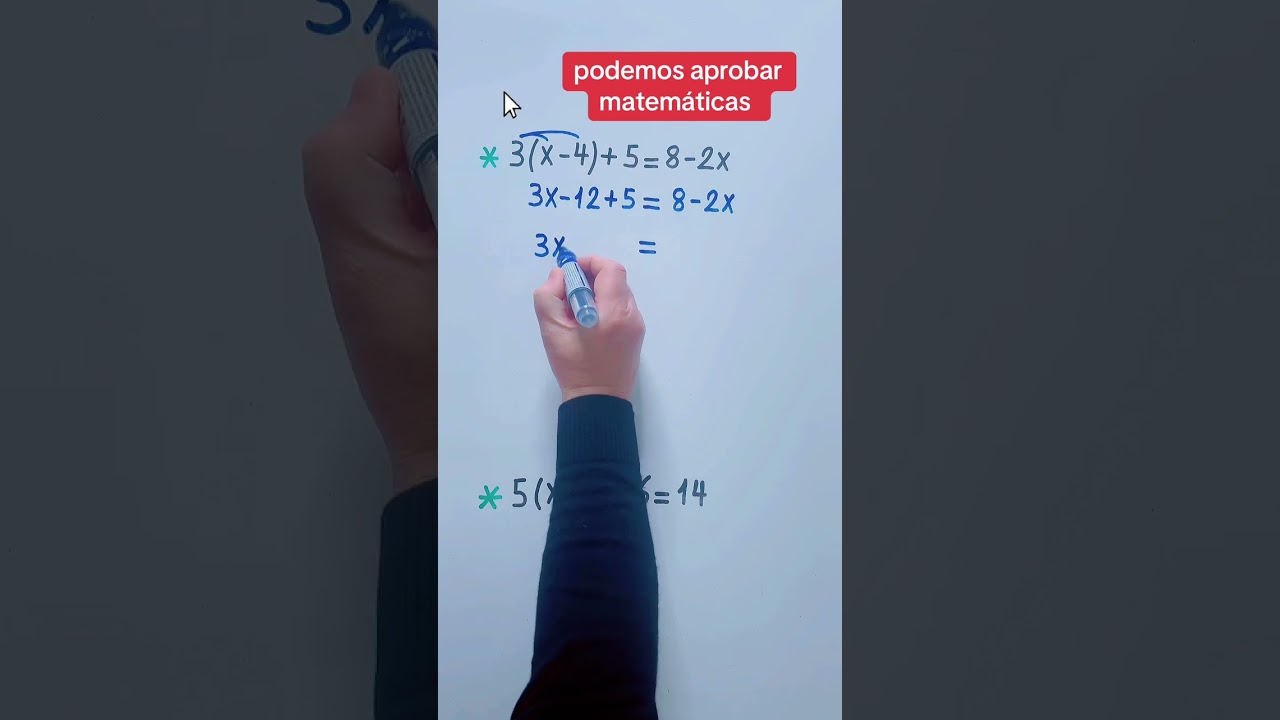 podemos aprobar
matemáticas
* 3(x-4)+5=8-2x
3x-12+5=8-2x
3x =
* 5(x =14